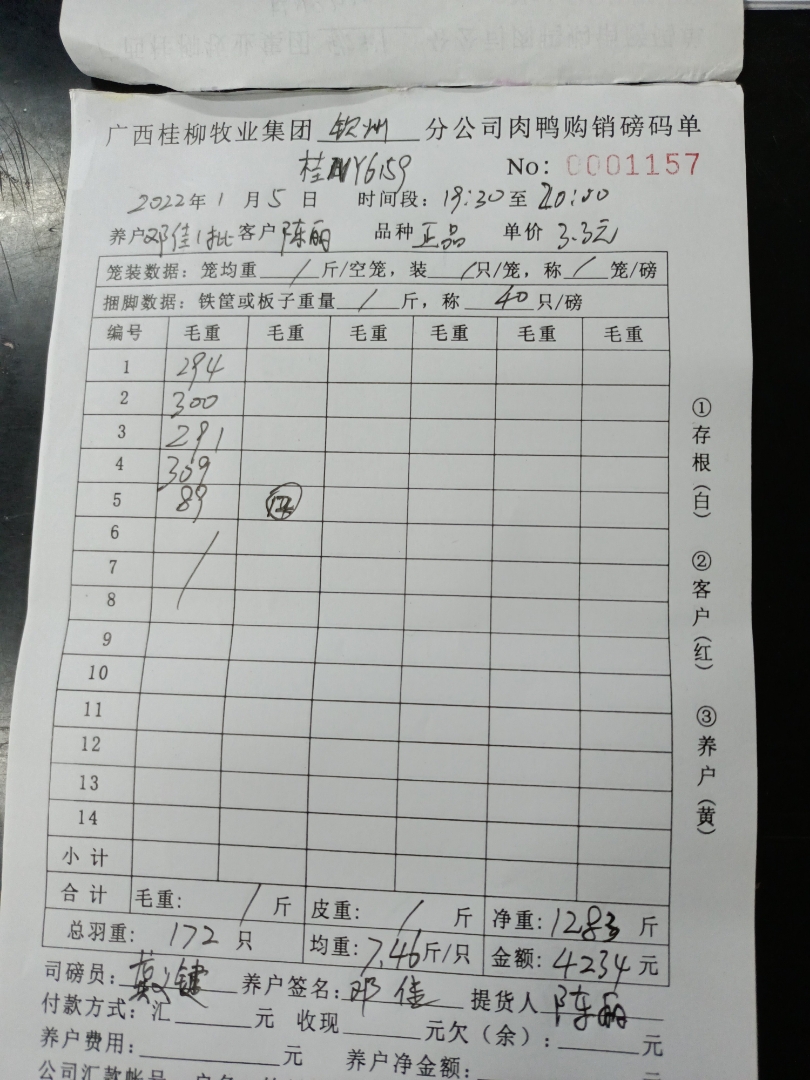 广西桂柳牧业集团 钦州 分公司肉鸭购销磅码单
No: 0001157
2022年1月5日 时间段: 19:30至20:00
养户邓佳1批 客户 陈丽 品种 正品 单价 3.3元
笼装数据: 笼均重 / 斤/空笼, 装 / 只/笼, 称 / 笼/磅
捆脚数据: 铁筐或板子重量 / 斤, 称 40 只/磅
编号 毛重 毛重 毛重 毛重 毛重 毛重
1 294
2 300
3 291
4 309
5 89
6
7
8
9
10
11
12
13
14
小计
合计 毛重: / 斤 皮重: / 斤 净重: 1283 斤
总羽重: 172 只 均重: 7.46斤/只 金额: 4234元
司磅员: 养户签名: 邓佳 提货人 陈丽
付款方式: 汇 元 收现 元欠(余): 元
养户费用: 元 养户净金额: 元
①存根(白) ②客户(红) ③养户(黄)